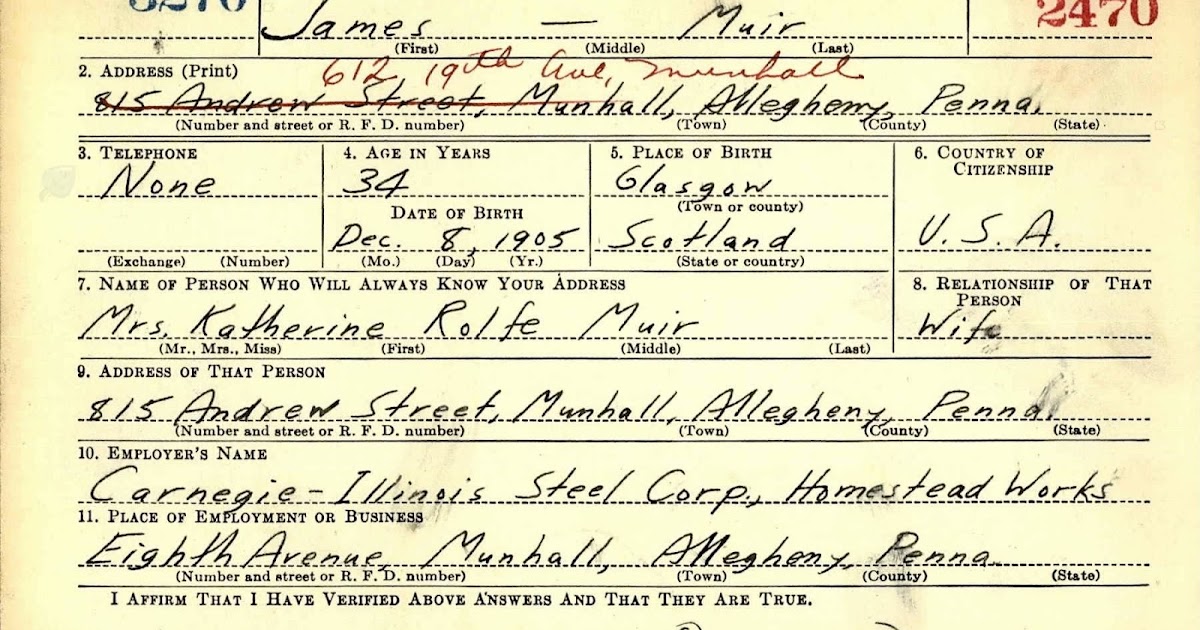 3276 2470
James — Muir
(First) (Middle) (Last)
612, 19th Ave, Munhall
2. ADDRESS (Print)
815 Andrew Street, Munhall, Allegheny, Penna.
(Number and street or R. F. D. number) (Town) (County) (State)
3. TELEPHONE 4. AGE IN YEARS 5. PLACE OF BIRTH 6. COUNTRY OF
CITIZENSHIP
None 34 Glasgow
(Town or county)
DATE OF BIRTH
Dec. 8, 1905 Scotland U. S. A.
(Exchange) (Number) (Mo.) (Day) (Yr.) (State or country)
7. NAME OF PERSON WHO WILL ALWAYS KNOW YOUR ADDRESS 8. RELATIONSHIP OF THAT
PERSON
Mrs. Katherine Rolfe Muir Wife
(Mr., Mrs., Miss) (First) (Middle) (Last)
9. ADDRESS OF THAT PERSON
815 Andrew Street, Munhall, Allegheny, Penna.
(Number and street or R. F. D. number) (Town) (County) (State)
10. EMPLOYER'S NAME
Carnegie-Illinois Steel Corp., Homestead Works
11. PLACE OF EMPLOYMENT OR BUSINESS
Eighth Avenue, Munhall, Allegheny, Penna.
(Number and street or R. F. D. number) (Town) (County) (State)
I AFFIRM THAT I HAVE VERIFIED ABOVE ANSWERS AND THAT THEY ARE TRUE.